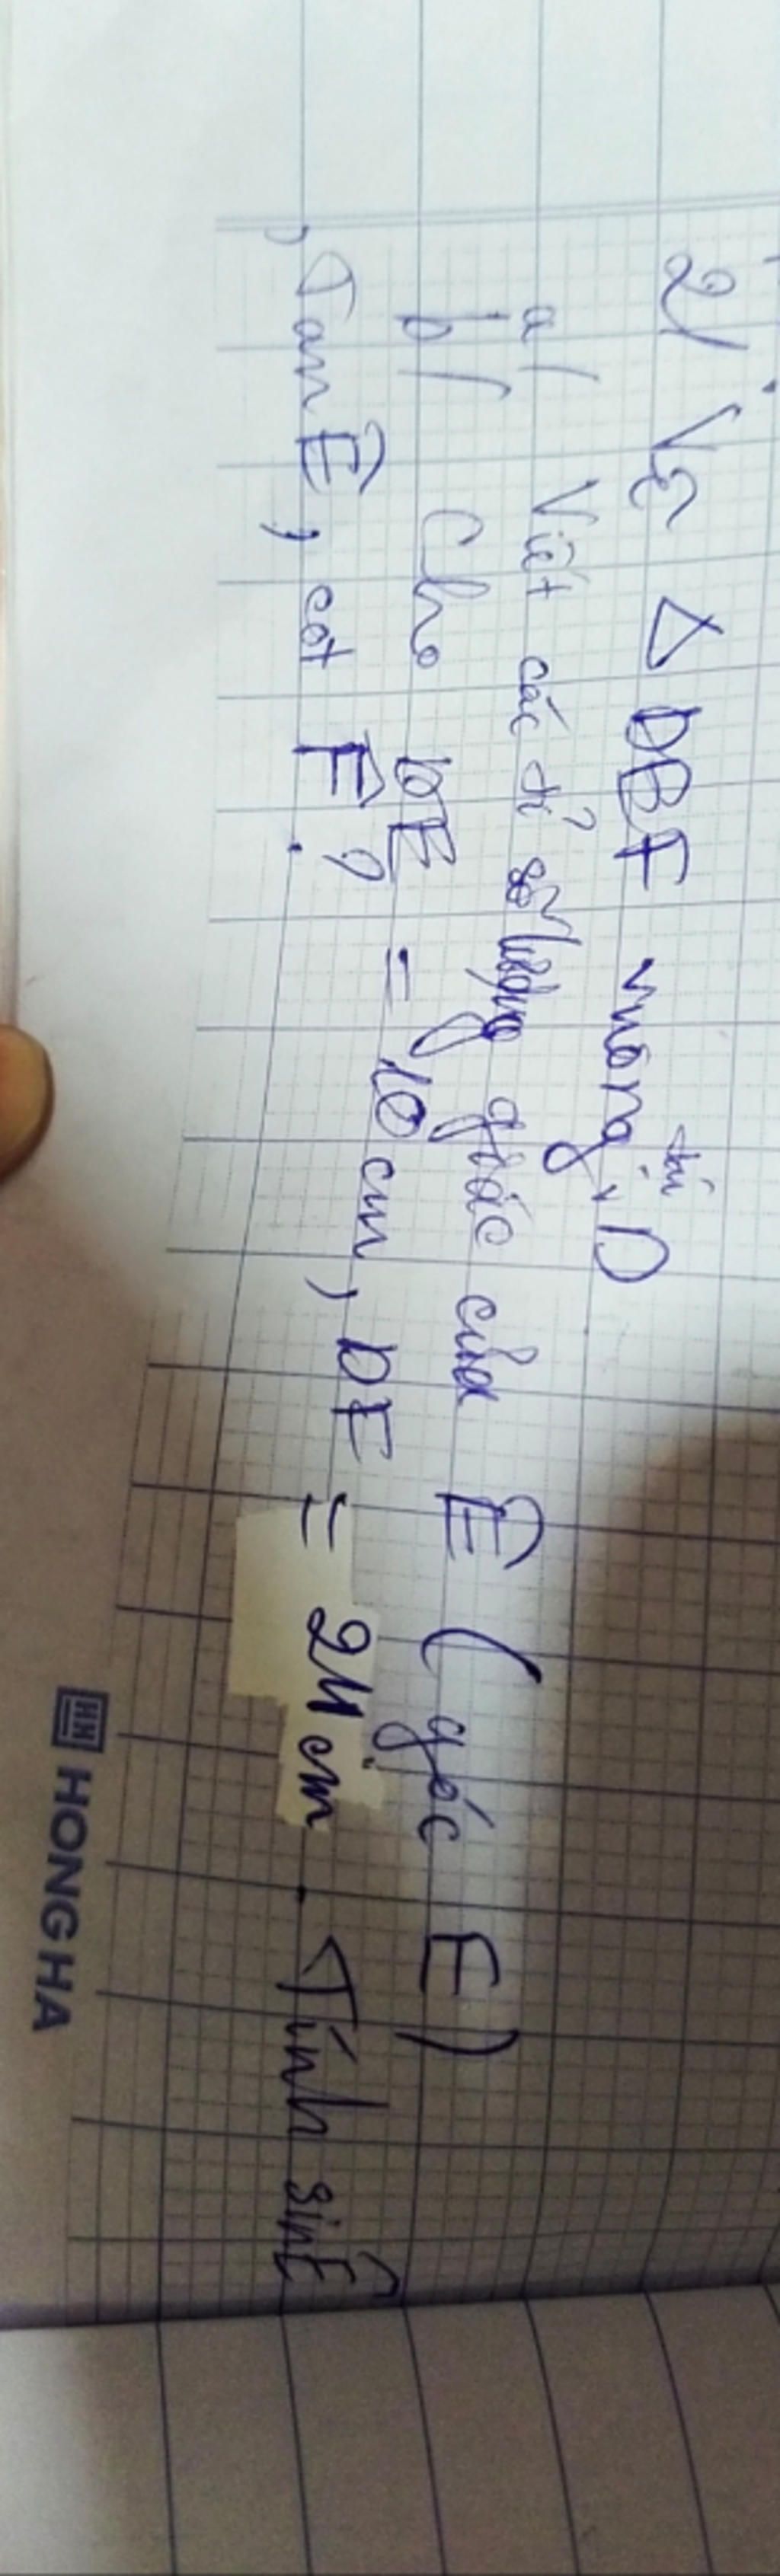 2/ Vẽ Δ DEF vuông tại D
a/ Viết các tỉ số lượng giác của Ê (góc E)
b/ Cho DE = 10 cm, DF = 24 cm. Tính sin Ê
, Tan Ê, cot F̂ ?
HONG HA